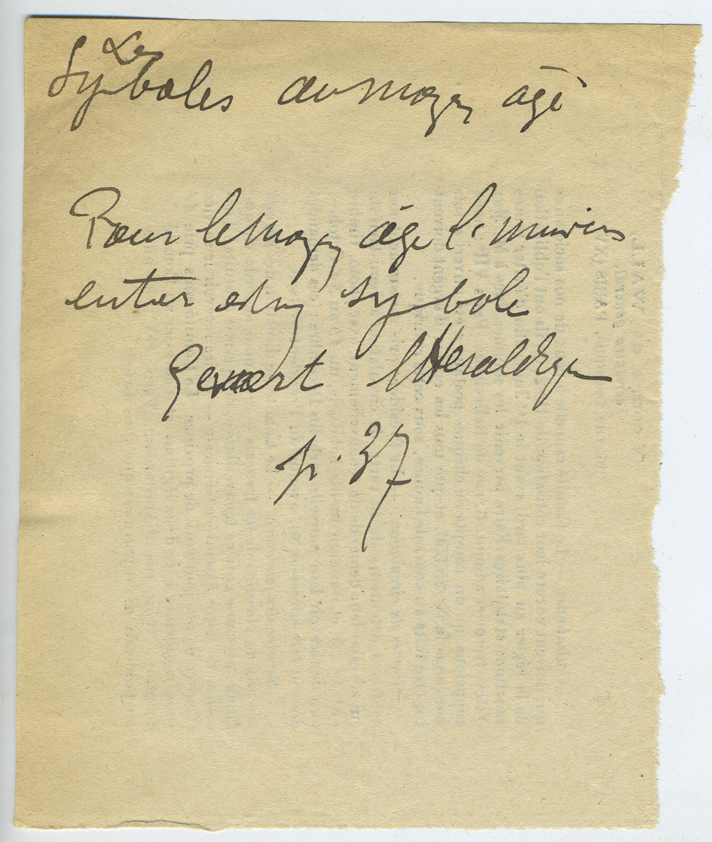 Les
Symboles au moyen âge
Pour le moyen âge l'univers
entier est un symbole
Gevaert l'Héraldique
p. 37